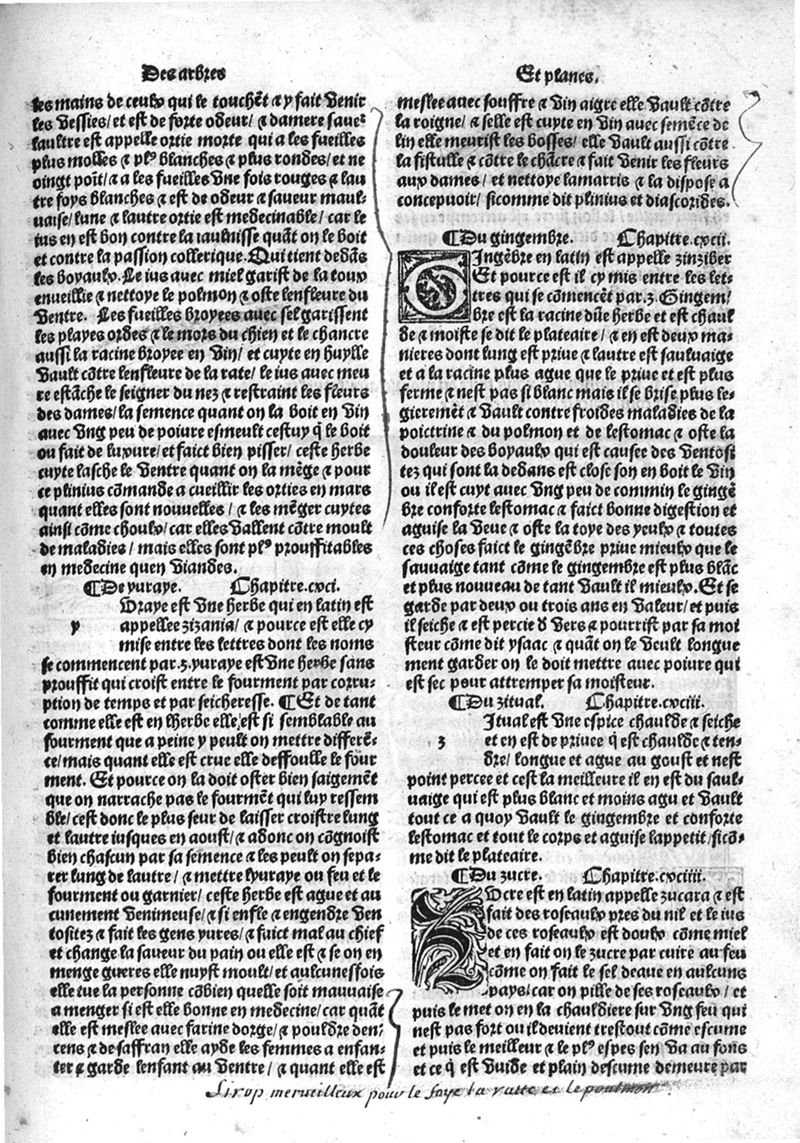 Des arbres
les mains de ceulx qui le touchẽt ⁊ y fait venir
les vessies/ et est de forte odeur/ ⁊ damere saueᵉ
laultre est appelle ortie morte qui a les fueilles
plus molles ⁊ plꝰ blanches ⁊ plus rondes/ et ne
oingt poĩt/ ⁊ a les fueilles vne fois rouges ⁊ lau
tre foys blanches ⁊ est de odeur ⁊ saueur maul⸗
uaise/ lune ⁊ lautre ortie est medecinable/ car le
ius en est bon contre la iaulnisse quãt on le boit
et contre la passion collerique. Qui tient dedãs
les boyaulx. Le ius avec miel garist de la toux
enueillie ⁊ nettoye le polmon ⁊ oste lenfleure du
ventre. Les fueilles broyees auec sel garissent
les playes ordes ⁊ le mors du chien et le chancre
aussi la racine broyee en vin/ et cuyte en huylle
vault cõtre lenfleure de la rate/ le ius auec meu
re estãche le seigner du nez ⁊ restraint les fleurs
des dames/ la semence quant on la boit en vin
auec vng peu de poiure esmeult cestuy q̃ le boit
ou fait de luxure/ et faict bien pisser/ ceste herbe
cuyte lasche le ventre quant on la mẽge ⁊ pour
ce plinius cõmande a cueillir les orties en mars
quant elles sont nouuelles/ ⁊ les mẽger cuytes
ainsi cõme choulx/ car elles vallent cõtre moult
de maladies/ mais elles sont plꝰ prouffitables
en medecine quen viandes.
¶De yuraye. Chapitre.cxci.
y
Vraye est vne herbe qui en latin est
appellee zizania/ ⁊ pource est elle cy
mise entre les lettres dont les noms
se commencent par.z.yuraye est vne herbe sans
prouffit qui croist entre le fourment par corru⸗
ption de temps et par seicheresse. ¶Et de tant
comme elle est en lherbe elle/est si semblable au
fourment que a peine y peult on mettre differẽ⸗
ce/mais quant elle est crue elle deffoulle le four
ment. Et pource on la doit oster bien saigemẽt
que on narrache pas le fourmẽt qui luy ressem
ble/ cest donc le plus seur de laisser croistre lung
et lautre iusques en aoust/ ⁊ adonc on cõgnoist
bien chascun par sa semence ⁊ les peult on sepa⸗
rer lung de lautre/ ⁊ mettre lyuraye ou feu et le
fourment ou garnier/ ceste herbe est ague et au
cunement venimeuse/ ⁊ si enfle ⁊ engendre ven
tositez ⁊ fait les gens yures/ ⁊ faict mal au chief
et change la saueur du pain ou elle est ⁊ se on en
menge gueres elle nuyst moult/ et aulcunesfois
elle tue la personne cõbien quelle soit mauuaise
a menger si est elle bonne en medecine/ car quãt
elle est meslee avec farine dorge/ ⁊ pouldre den⸗
cens ⁊ de saffran elle ayde les femmes a enfan⸗
ter ⁊ garde lenfant au ventre/ ⁊ quant elle est
Et planes.
meslee auec souffre ⁊ vin aigre elle vault cõtre
la roigne/ ⁊ selle est cuyte en vin auec semẽce de
lin elle meurist les bosses/ elle vault aussi cõtre
la fistulle ⁊ cõtre le chãcre ⁊ fait venir les fleurs
aux dames/ et nettoye lamarris ⁊ la dispose a
concepuoir/ sicomme dit plinius et diascorides.
¶Du gingembre. Chapitre.cxcii.
GIngẽbre en latin est appelle zinziber
Et pource est il cy mis entre les let⸗
tres qui se cõmencẽt par.z. Gingem/
bre est la racine dũe herbe et est chaul
de ⁊ moiste se dit le plateaire/ ⁊ en est deux ma⸗
nieres dont lung est priue ⁊ lautre est sauluaige
et a la racine plus ague que le priue et est plus
ferme ⁊ nest pas si blanc mais il se brise plus le⸗
gieremẽt ⁊ vault contre froides maladies de la
poictrine ⁊ du polmon et de lestomac ⁊ oste la
douleur des boyaulx qui est causee des ventosi
tez qui sont la dedans est close son en boit le vin
ou il est cuyt avec vng peu de commin le gingẽ
bre conforte lestomac ⁊ faict bonne digestion et
aguise la veue ⁊ oste la toye des yeulx ⁊ toutes
ces choses faict le gingẽbre priue mieulx que le
sauuaige tant cõme le gingembre est plus blãc
et plus nouueau de tant vault il mieulx. Et se
garde par deux ou trois ans en valeur/ et puis
il seiche ⁊ est percie d vers ⁊ pourrist par sa moi
steur cõme dit ysaac ⁊ quãt on le veult longue
ment garder on le doit mettre avec poiure qui
est sec pour attremper sa moisteur.
¶Du zitual. Chapitre.cxciii.
z
Itual est vne espice chaulde ⁊ seiche
et en est de priuee q̃ est chaulde ⁊ ten⸗
dre/ longue et ague au goust et nest
point percee et cest la meilleure il en est du saul⸗
uaige qui est plus blanc et moins agu et vault
tout ce a quoy vault le gingembre et conforte
lestomac et tout le corps et aguise lappetit/sicõ⸗
me dit le plateaire.
¶Du zucre. Chapitre.cxciiii.
ZVcre est en latin appelle zucara ⁊ est
fait des roseaulx pres du nil et le ius
de ces roseaulx est doulx cõme miel
et en fait on le zucre par cuire au feu
cõme on fait le sel deaue en aulcuns
pays/ car on pille de ses roseaulx/ et
puis le met on en la chauldiere sur vng feu qui
nest pas fort ou il deuient trestout cõme escume
et puis le meilleur ⁊ le plꝰ espes sen va au fons
et ce q̃ est vuide et plain descume demeure par
Sirop merueilleux pour le foye la ratte et le poulmon